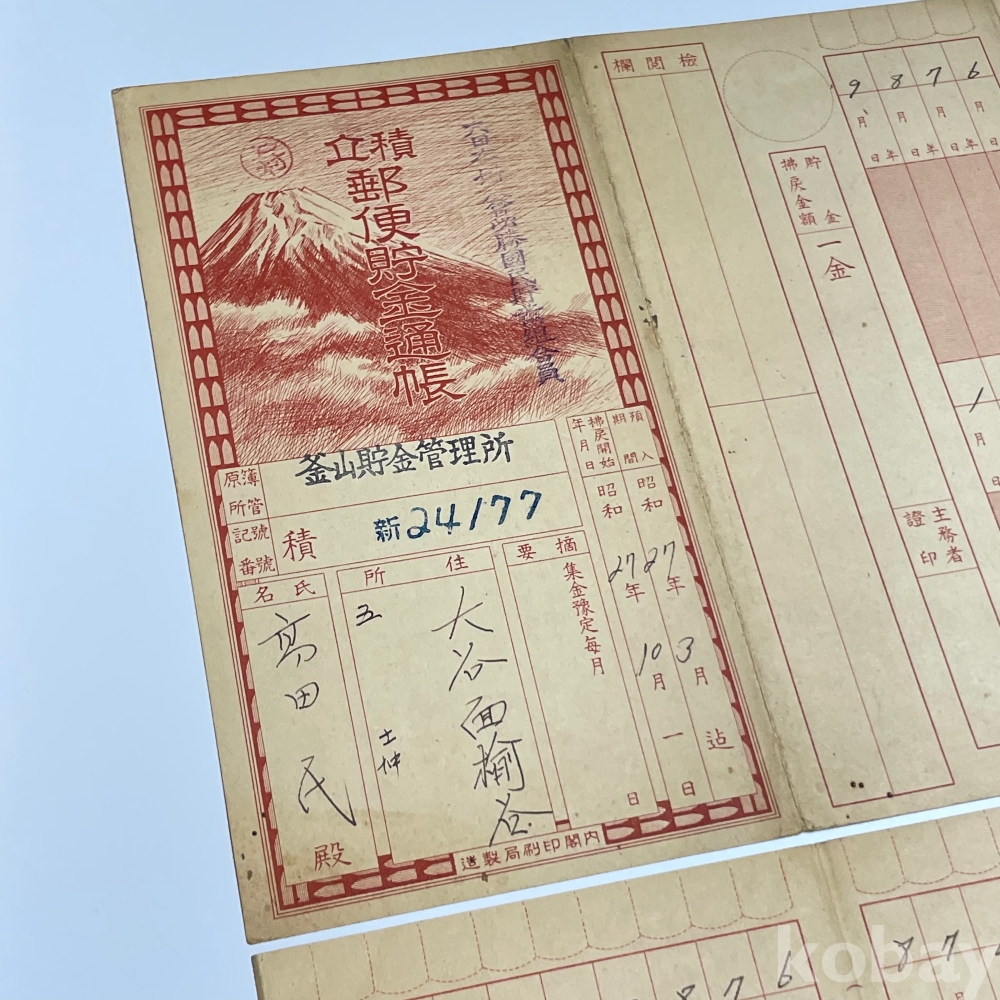 積立
郵便貯金通帳
原簿所管
釜山貯金管理所
記號番號
積
新24177
預入期間
昭和27年3月迄
拂戻開始年月日
昭和27年10月一日
摘要
集金豫定每月
住所
大谷面榆谷
五
氏名
高田 民
殿
内閣印刷局製造
檢閱欄
9 8 7 6
月 月 月 月
年 年 年 年
日 日 日 日
貯金
拂戻金額
一金
1
月
日
主務者
證印
8 7 6
8 7
kobay